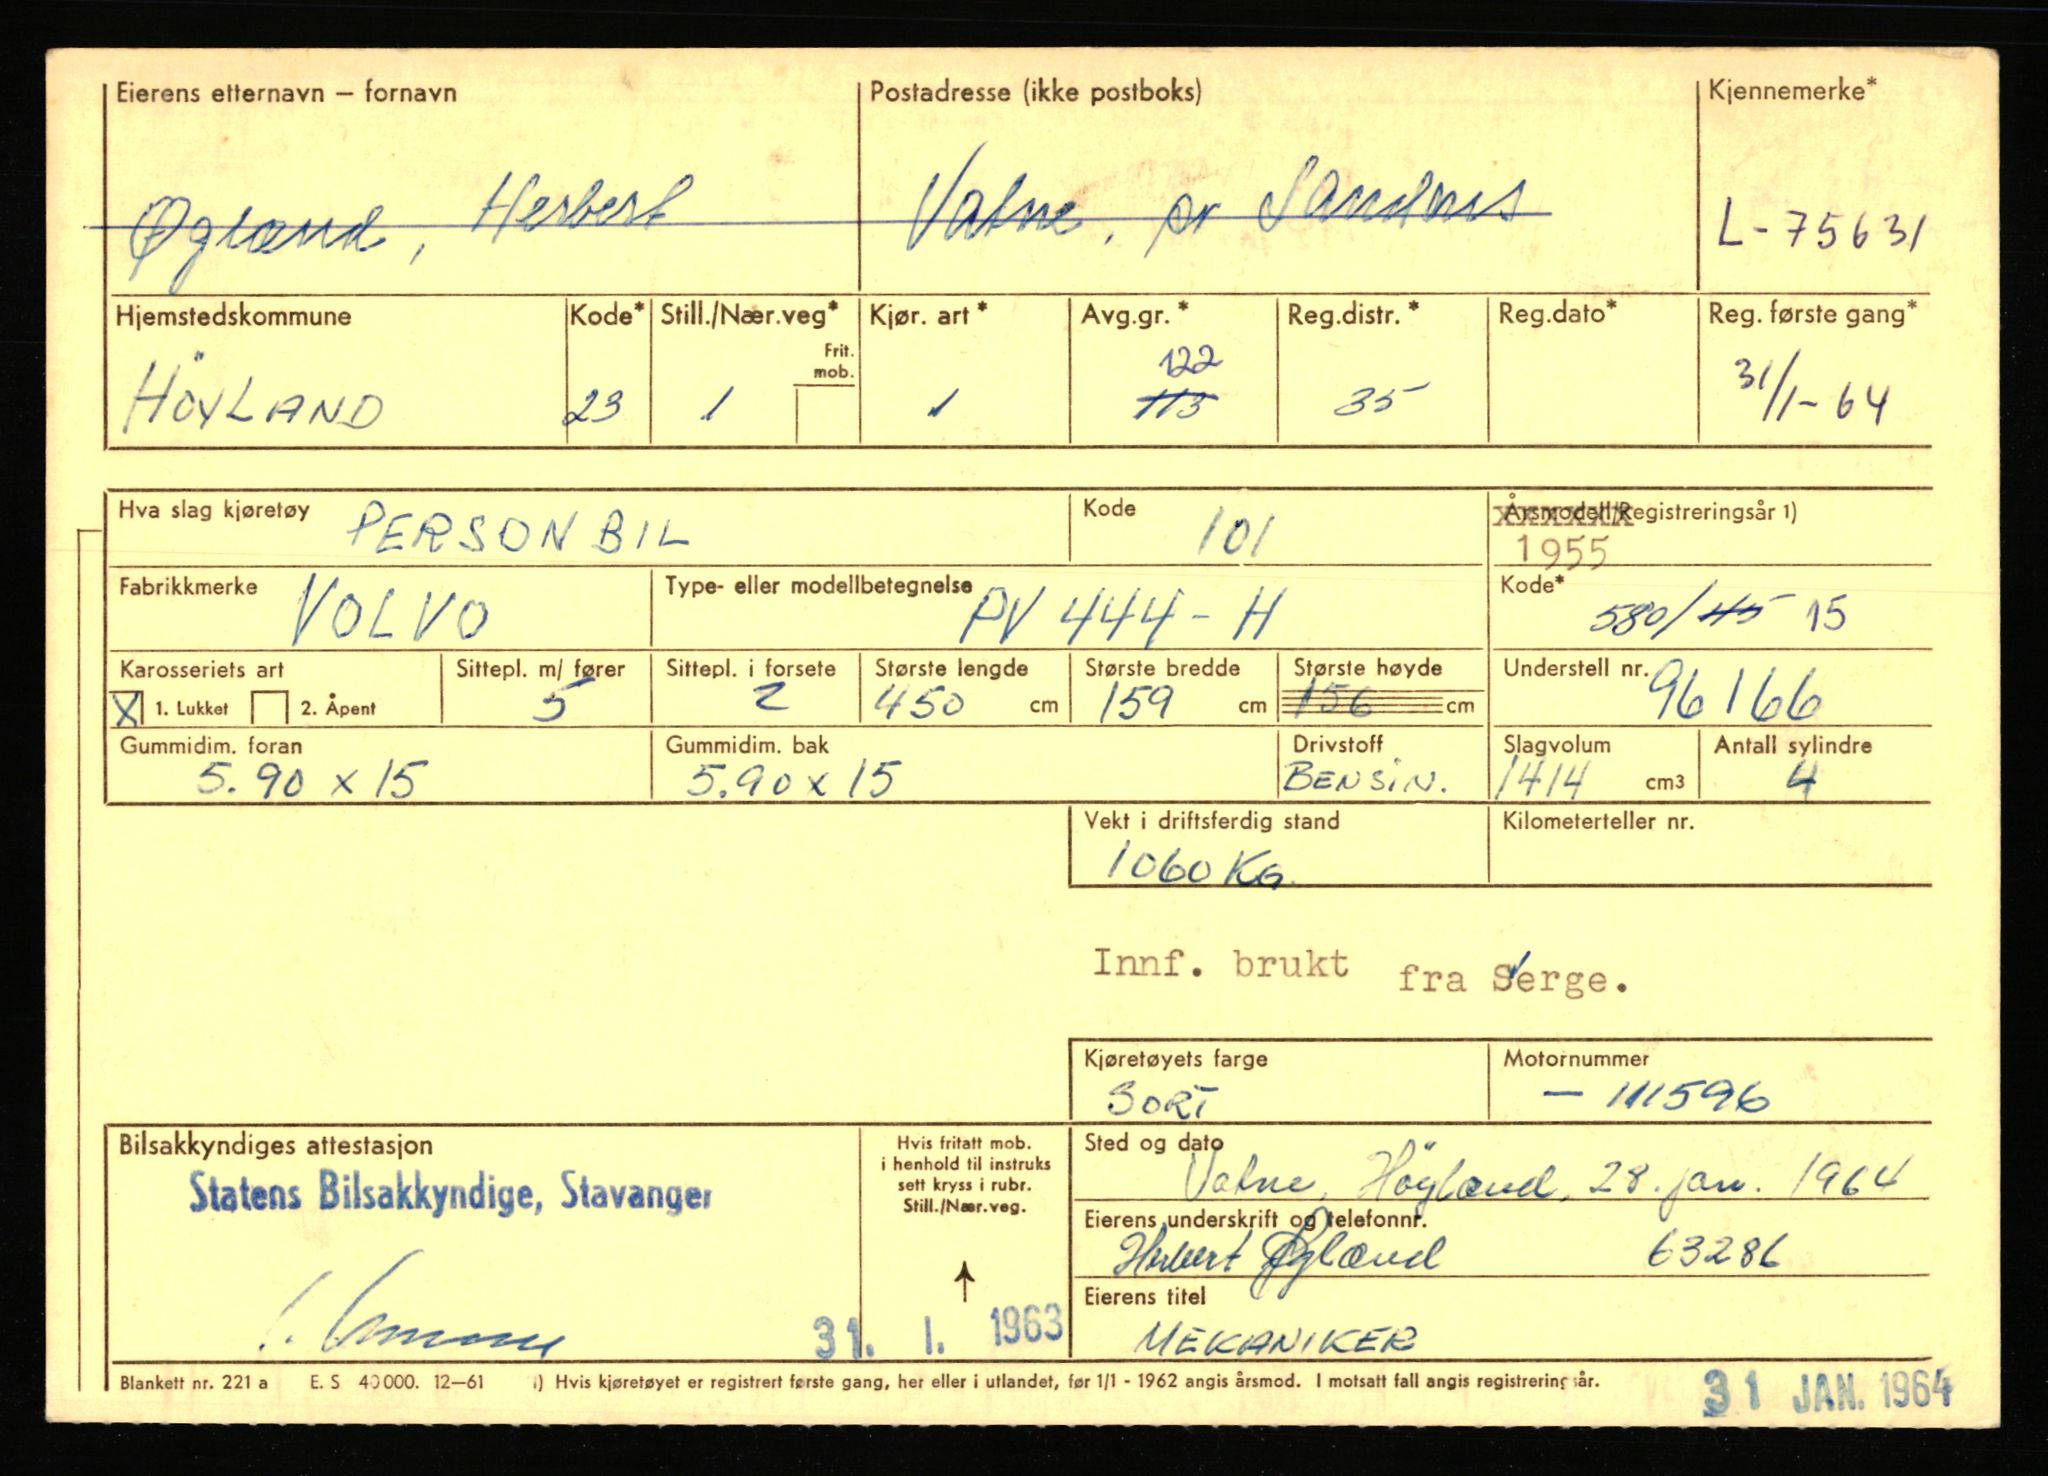 Eierens etternavn – fornavn
Postadresse (ikke postboks)
Kjennemerke*
Øglænd, Herbert
Vatne, pr Sandnes
L-75631
Hjemstedskommune
Kode*
Still./Nær.veg*
Frit. mob.
Kjør. art*
Avg.gr.*
Reg.distr.*
Reg.dato*
Reg. første gang*
HÖYLAND
23
1
1
122
113
35
31/1-64
Hva slag kjøretøy
PERSONBIL
Kode
101
Årsmodell/Registreringsår 1)
1955
Fabrikkmerke
VOLVO
Type- eller modellbetegnelse
PV 444-H
Kode*
580/115 15
Karosseriets art
X 1. Lukket 2. Åpent
Sittepl. m/ fører
5
Sittepl. i forsete
2
Største lengde
450 cm
Største bredde
159 cm
Største høyde
156 cm
Understell nr.
96166
Gummidim. foran
5.90 x 15
Gummidim. bak
5.90 x 15
Drivstoff
BENSIN.
Slagvolum
1414 cm3
Antall sylindre
4
Vekt i driftsferdig stand
1060 KG.
Kilometerteller nr.
Innf. brukt fra Sverge.
Kjøretøyets farge
SORT
Motornummer
– 111596
Bilsakkyndiges attestasjon
Statens Bilsakkyndige, Stavanger
31. 1. 1963
Hvis fritatt mob.
i henhold til instruks
sett kryss i rubr.
Still./Nær.veg.
↑
Sted og dato
Vatne, Höyland, 28. jan. 1964
Eierens underskrift og telefonnr.
Herbert Øglænd 63286
Eierens titel
MEKANIKER
Blankett nr. 221 a E. S 40 000. 12–61 1) Hvis kjøretøyet er registrert første gang, her eller i utlandet, før 1/1 - 1962 angis årsmod. I motsatt fall angis registreringsår.
31 JAN. 1964